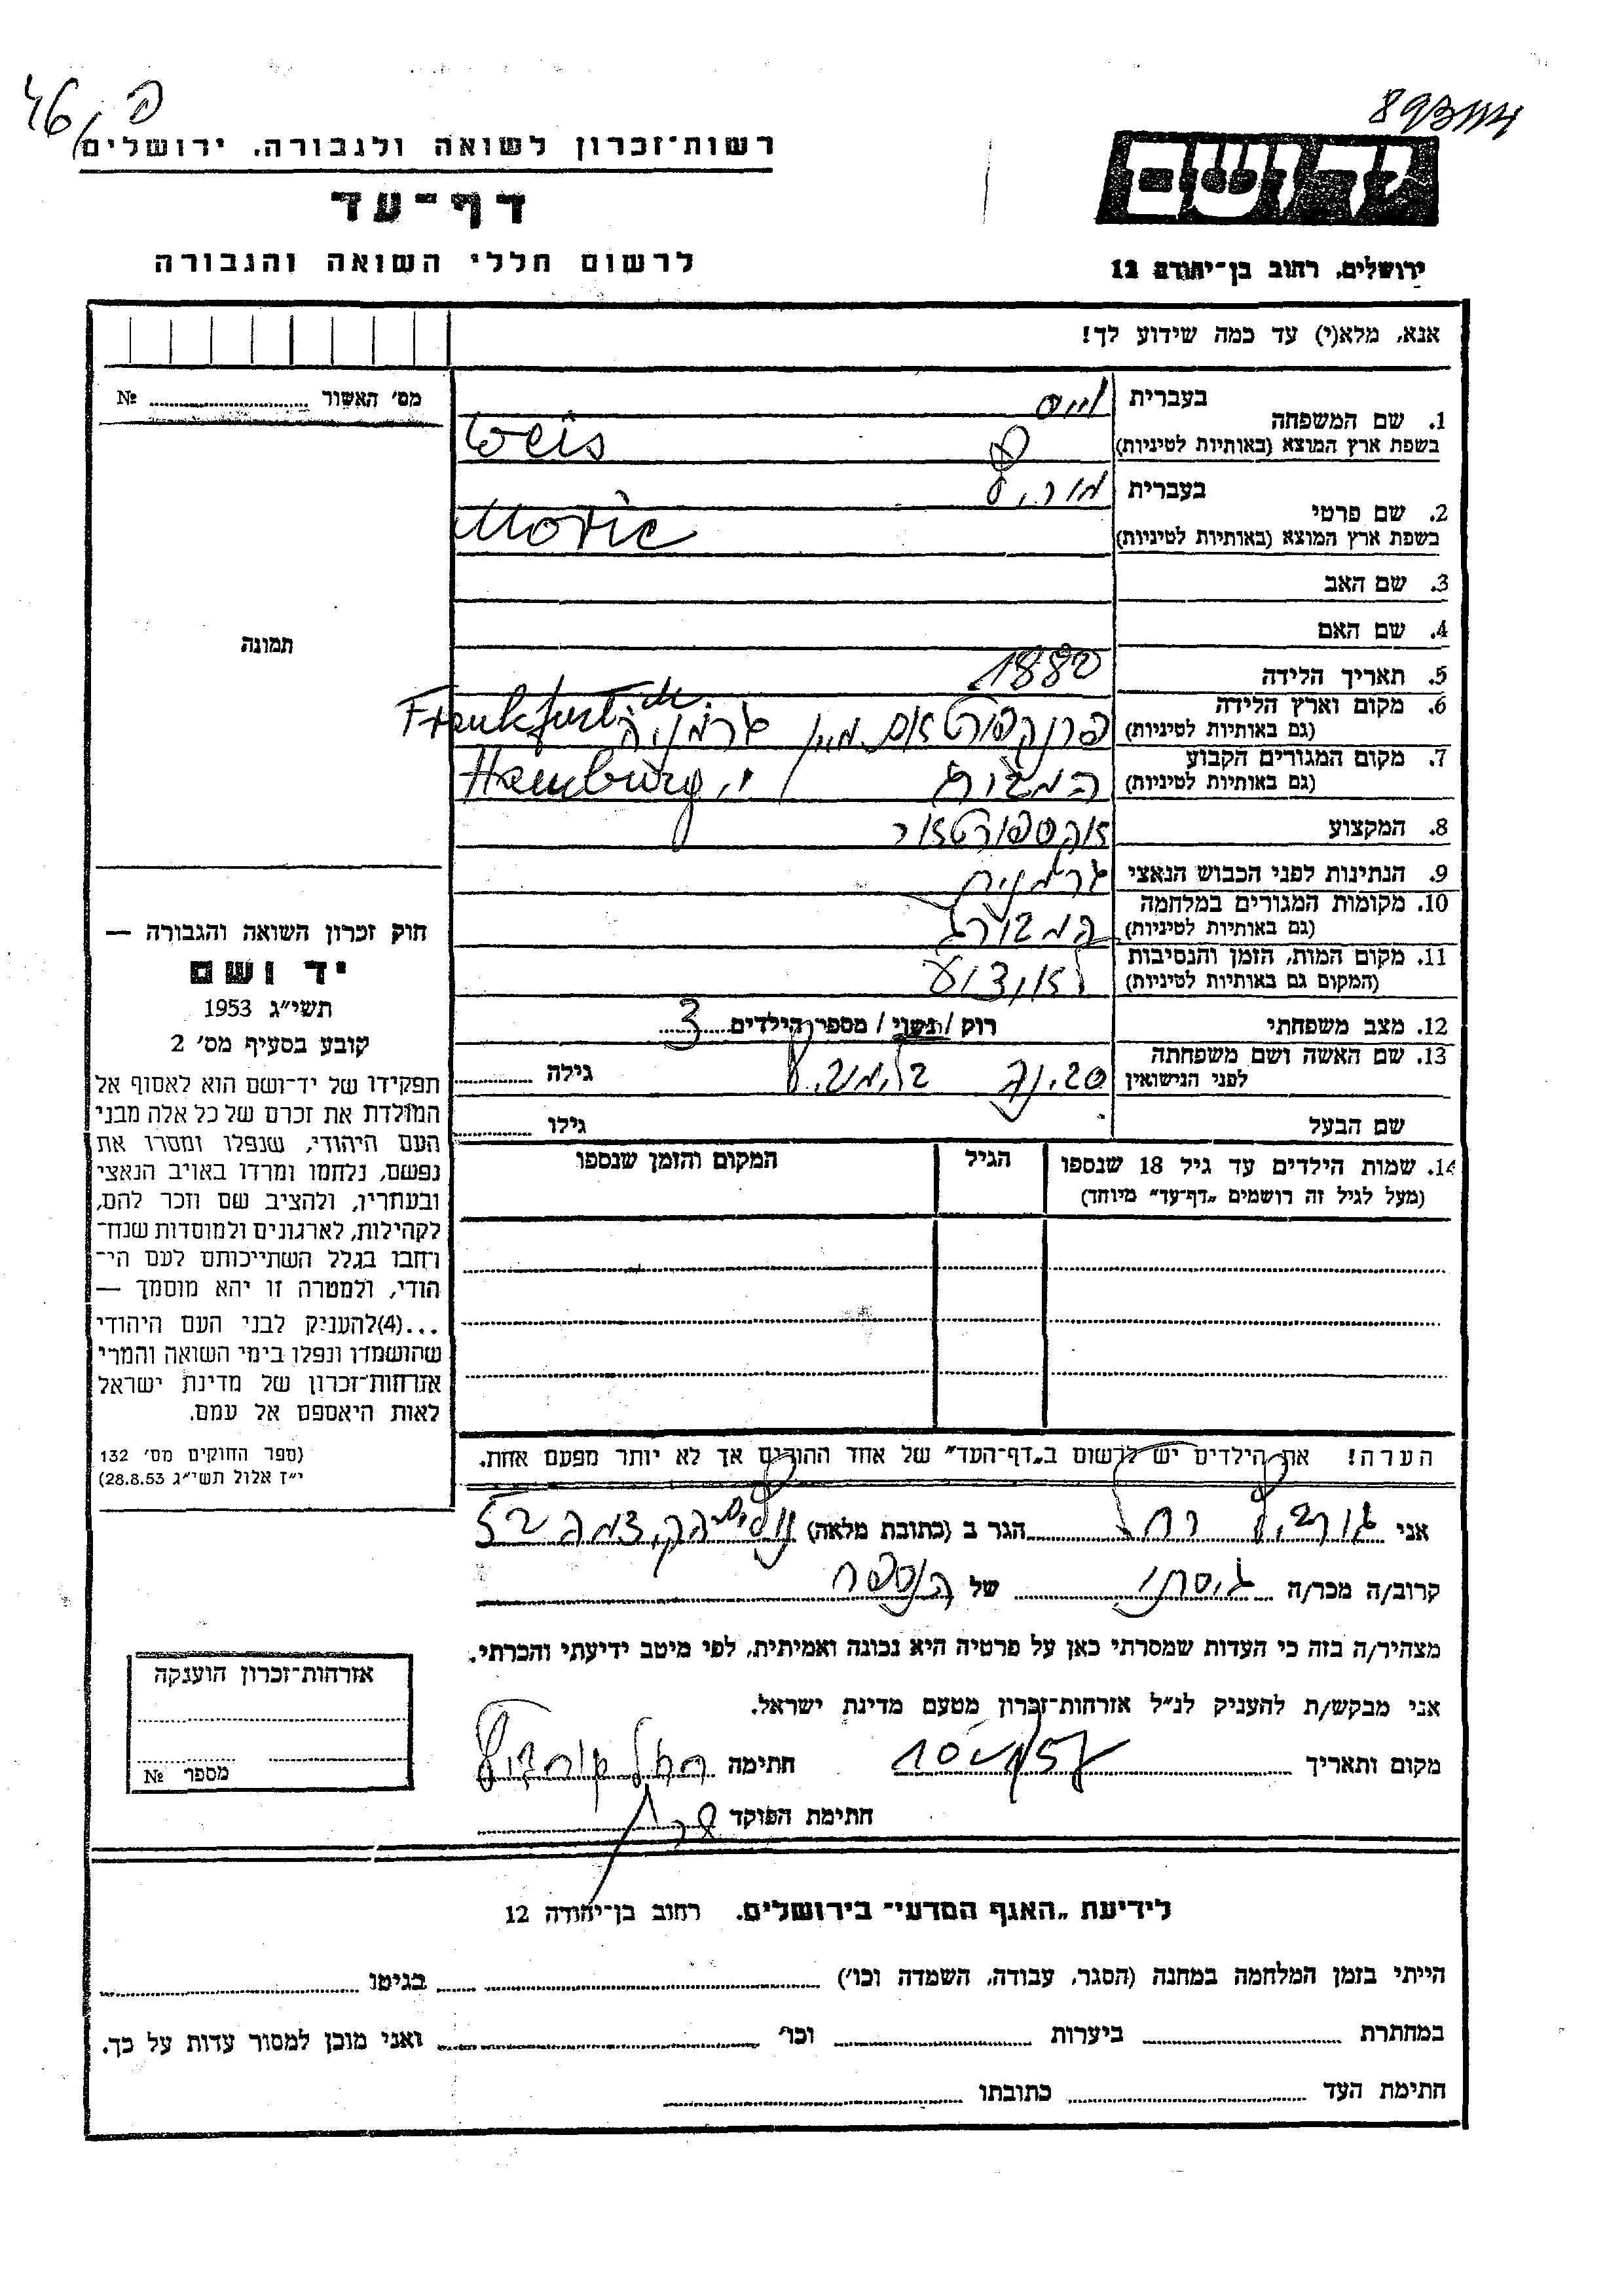 פ
46
893114
רשות־זכרון לשואה ולגבורה. ירושלים
דף־עד
לרשום חללי השואה והגבורה
יד ושם
ירושלים, רחוב בן־יהודה 12
אנא, מלא(י) עד כמה שידוע לך!
מס׳ האשור № 
1. שם המשפחה בעברית וייס
בשפת ארץ המוצא (באותיות לטיניות) Weis
2. שם פרטי בעברית מוריץ
בשפת ארץ המוצא (באותיות לטיניות) Moric
3. שם האב
4. שם האם
תמונה
5. תאריך הלידה 1880
6. מקום וארץ הלידה
(גם באותיות לטיניות) פרנקפורט אם מיין גרמניה Frankfurt
7. מקום המגורים הקבוע
(גם באותיות לטיניות) המבורג Hamburg
8. המקצוע אקספורטאור
9. הנתינות לפני הכבוש הנאצי גרמנית
10. מקומות המגורים במלחמה
(גם באותיות לטיניות) המבורג
11. מקום המות, הזמן והנסיבות
(המקום גם באותיות לטיניות) לא ידוע
12. מצב משפחתי רוק / נשוי / מספר הילדים 3
13. שם האשה ושם משפחתה
לפני הנישואין גילה
שם הבעל גילו
14. שמות הילדים עד גיל 18 שנספו הגיל המקום והזמן שנספו
(מעל לגיל זה רושמים „דף־עד״ מיוחד)
חוק זכרון השואה והגבורה —
יד ושם
תשי״ג 1953
קובע בסעיף מס׳ 2
תפקידו של יד־ושם הוא לאסוף אל
המולדת את זכרם של כל אלה מבני
העם היהודי, שנפלו ומסרו את
נפשם, נלחמו ומרדו באויב הנאצי
ובעוזריו, ולהציב שם וזכר להם,
לקהילות, לארגונים ולמוסדות שנח־
רחבו בגלל השתייכותם לעם הי־
הודי, ולמטרה זו יהא מוסמך —
...(4)להעניק לבני העם היהודי
שהושמדו ונפלו בימי השואה והמרי
אזרחות־זכרון של מדינת ישראל
לאות היאספם אל עמם.
(ספר החוקים מס׳ 132
י״ז אלול תשי״ג 28.8.53)
הערה! את הילדים יש לרשום ב„דף־העד״ של אחד ההורים אך לא יותר מפעם אחת.
אני רחל הגר ב (כתובת מלאה) 52
קרוב/ה מכר/ה גיסתי של הנספה
מצהיר/ה בזה כי העדות שמסרתי כאן על פרטיה היא נכונה ואמיתית, לפי מיטב ידיעתי והכרתי.
אני מבקש/ת להעניק לנ״ל אזרחות־זכרון מטעם מדינת ישראל.
מקום ותאריך חתימה רחל
חתימת הפוקד
אזרחות־זכרון הוענקה
מספר №
לידיעת „האגף המדעי״ בירושלים. רחוב בן־יהודה 12
הייתי בזמן המלחמה במחנה (הסגר, עבודה, השמדה וכו׳) בגיטו
במחתרת ביערות וכו׳ ואני מוכן למסור עדות על כך.
חתימת העד כתובתו